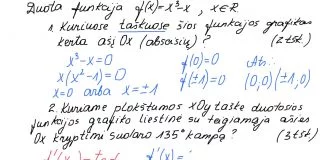 Duota funkcija f(x)=x³-x, x∈R
1. Kuriuose taškuose šios funkcijos grafikas
kerta ašį Ox (abscisių)? (2 tšk.)
x³-x=0 f(0)=0 Ats.:
x(x²-1)=0 f(±1)=0 (0,0)(±1,0)
x=0 arba x=±1
2. Kuriame plokštumos xOy taške duotosios
funkcijos grafiko liestinė su teigiamąja ašies
Ox kryptimi sudaro 135° kampą? (3 tšk.)
f'(x)=